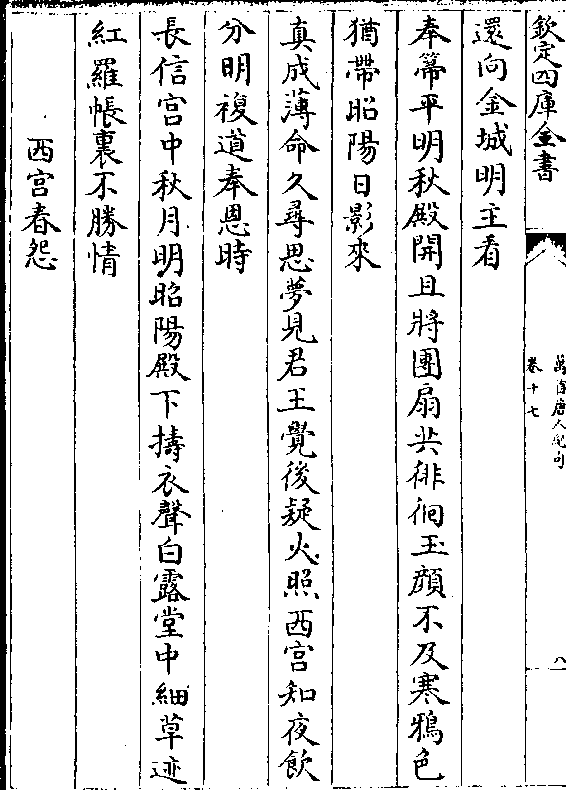 欽定四庫全書
萬首唐人絶句
卷十七
八
還向金城明主看
奉箒平明秋殿開且將團扇共徘徊玉顔不及寒鴉色
猶帶昭陽日影來
真成薄命久尋思夢見君王覺後疑火照西宫知夜飲
分明複道奉恩時
長信宫中秋月明昭陽殿下擣衣聲白露堂中細草迹
紅羅帳裏不勝情
西宫春怨